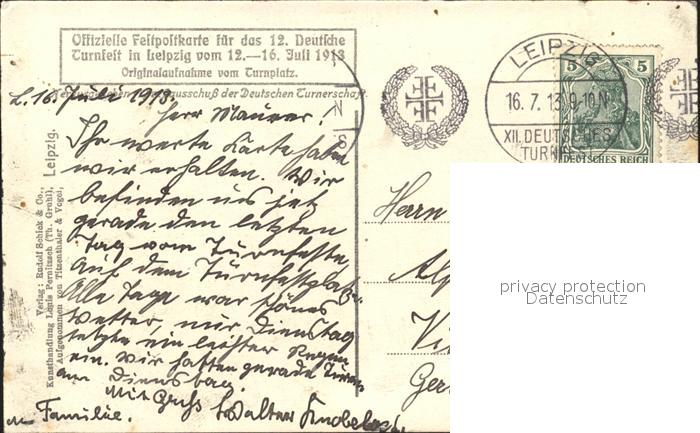 Offizielle Festpostkarte für das 12. Deutsche
Turnfest in Leipzig vom 12.—16. Juli 1913
Originalaufnahme vom Turnplatz.
ausschuß der Deutschen Turnerschaft
L. 16. Juli 1913.
Herr Maurer!
Ihr werte Karte haben
wir erhalten. Wir
befinden uns jetz
gerade den letzten
Tag vom Turnfeste
auf dem Turnfestplatz.
Alle Tage war schönes
Wetter, nur Dienstag
setzte ein leichter Regen
ein. Wir hatten gerade Turnen
am Dienstag.
Mit Gruß
Familie. Walter
Verlag: Rudolf Schick & Co.,
Kunsthandlung Louis Pernitzsch (Th. Grohl), Leipzig.
Aufgenommen von Titzenthaler & Vogel,
LEIPZIG
16. 7. 13. 9-10 N.
XII. DEUTSCHES
5 5
DEUTSCHES REICH
Herrn
privacy protection
Datenschutz